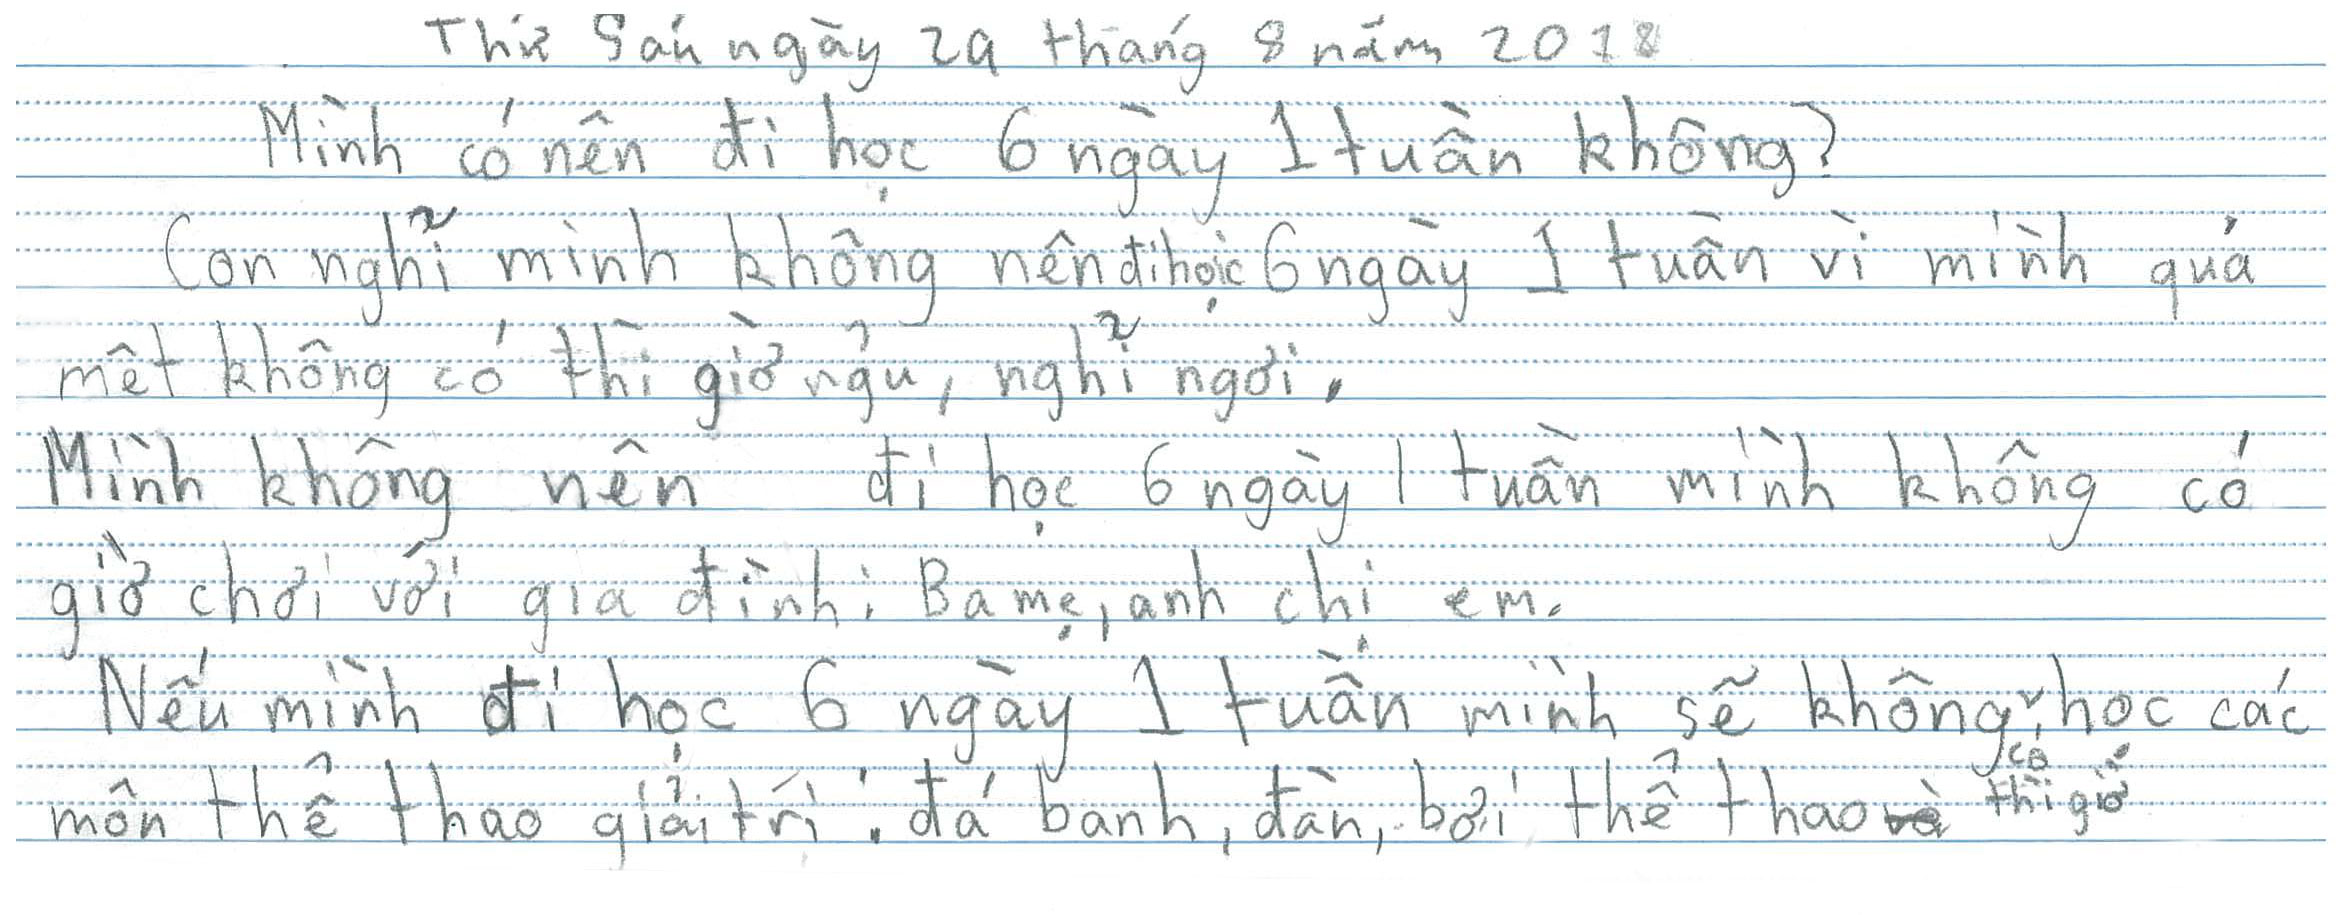 Thứ Sáu ngày 29 tháng 8 năm 2018
Mình có nên đi học 6 ngày 1 tuần không?
Con nghĩ mình không nên đi học 6 ngày 1 tuần vì mình quá
mêt không có thì giờ ngủ, nghỉ ngơi.
Mình không nên đi học 6 ngày 1 tuần mình không có
giờ chơi với gia đình: Ba mẹ, anh chị em.
Nếu mình đi học 6 ngày 1 tuần mình sẽ không có thì giờ học các
môn thể thao giải trí: đá banh, đàn, bơi thể thao